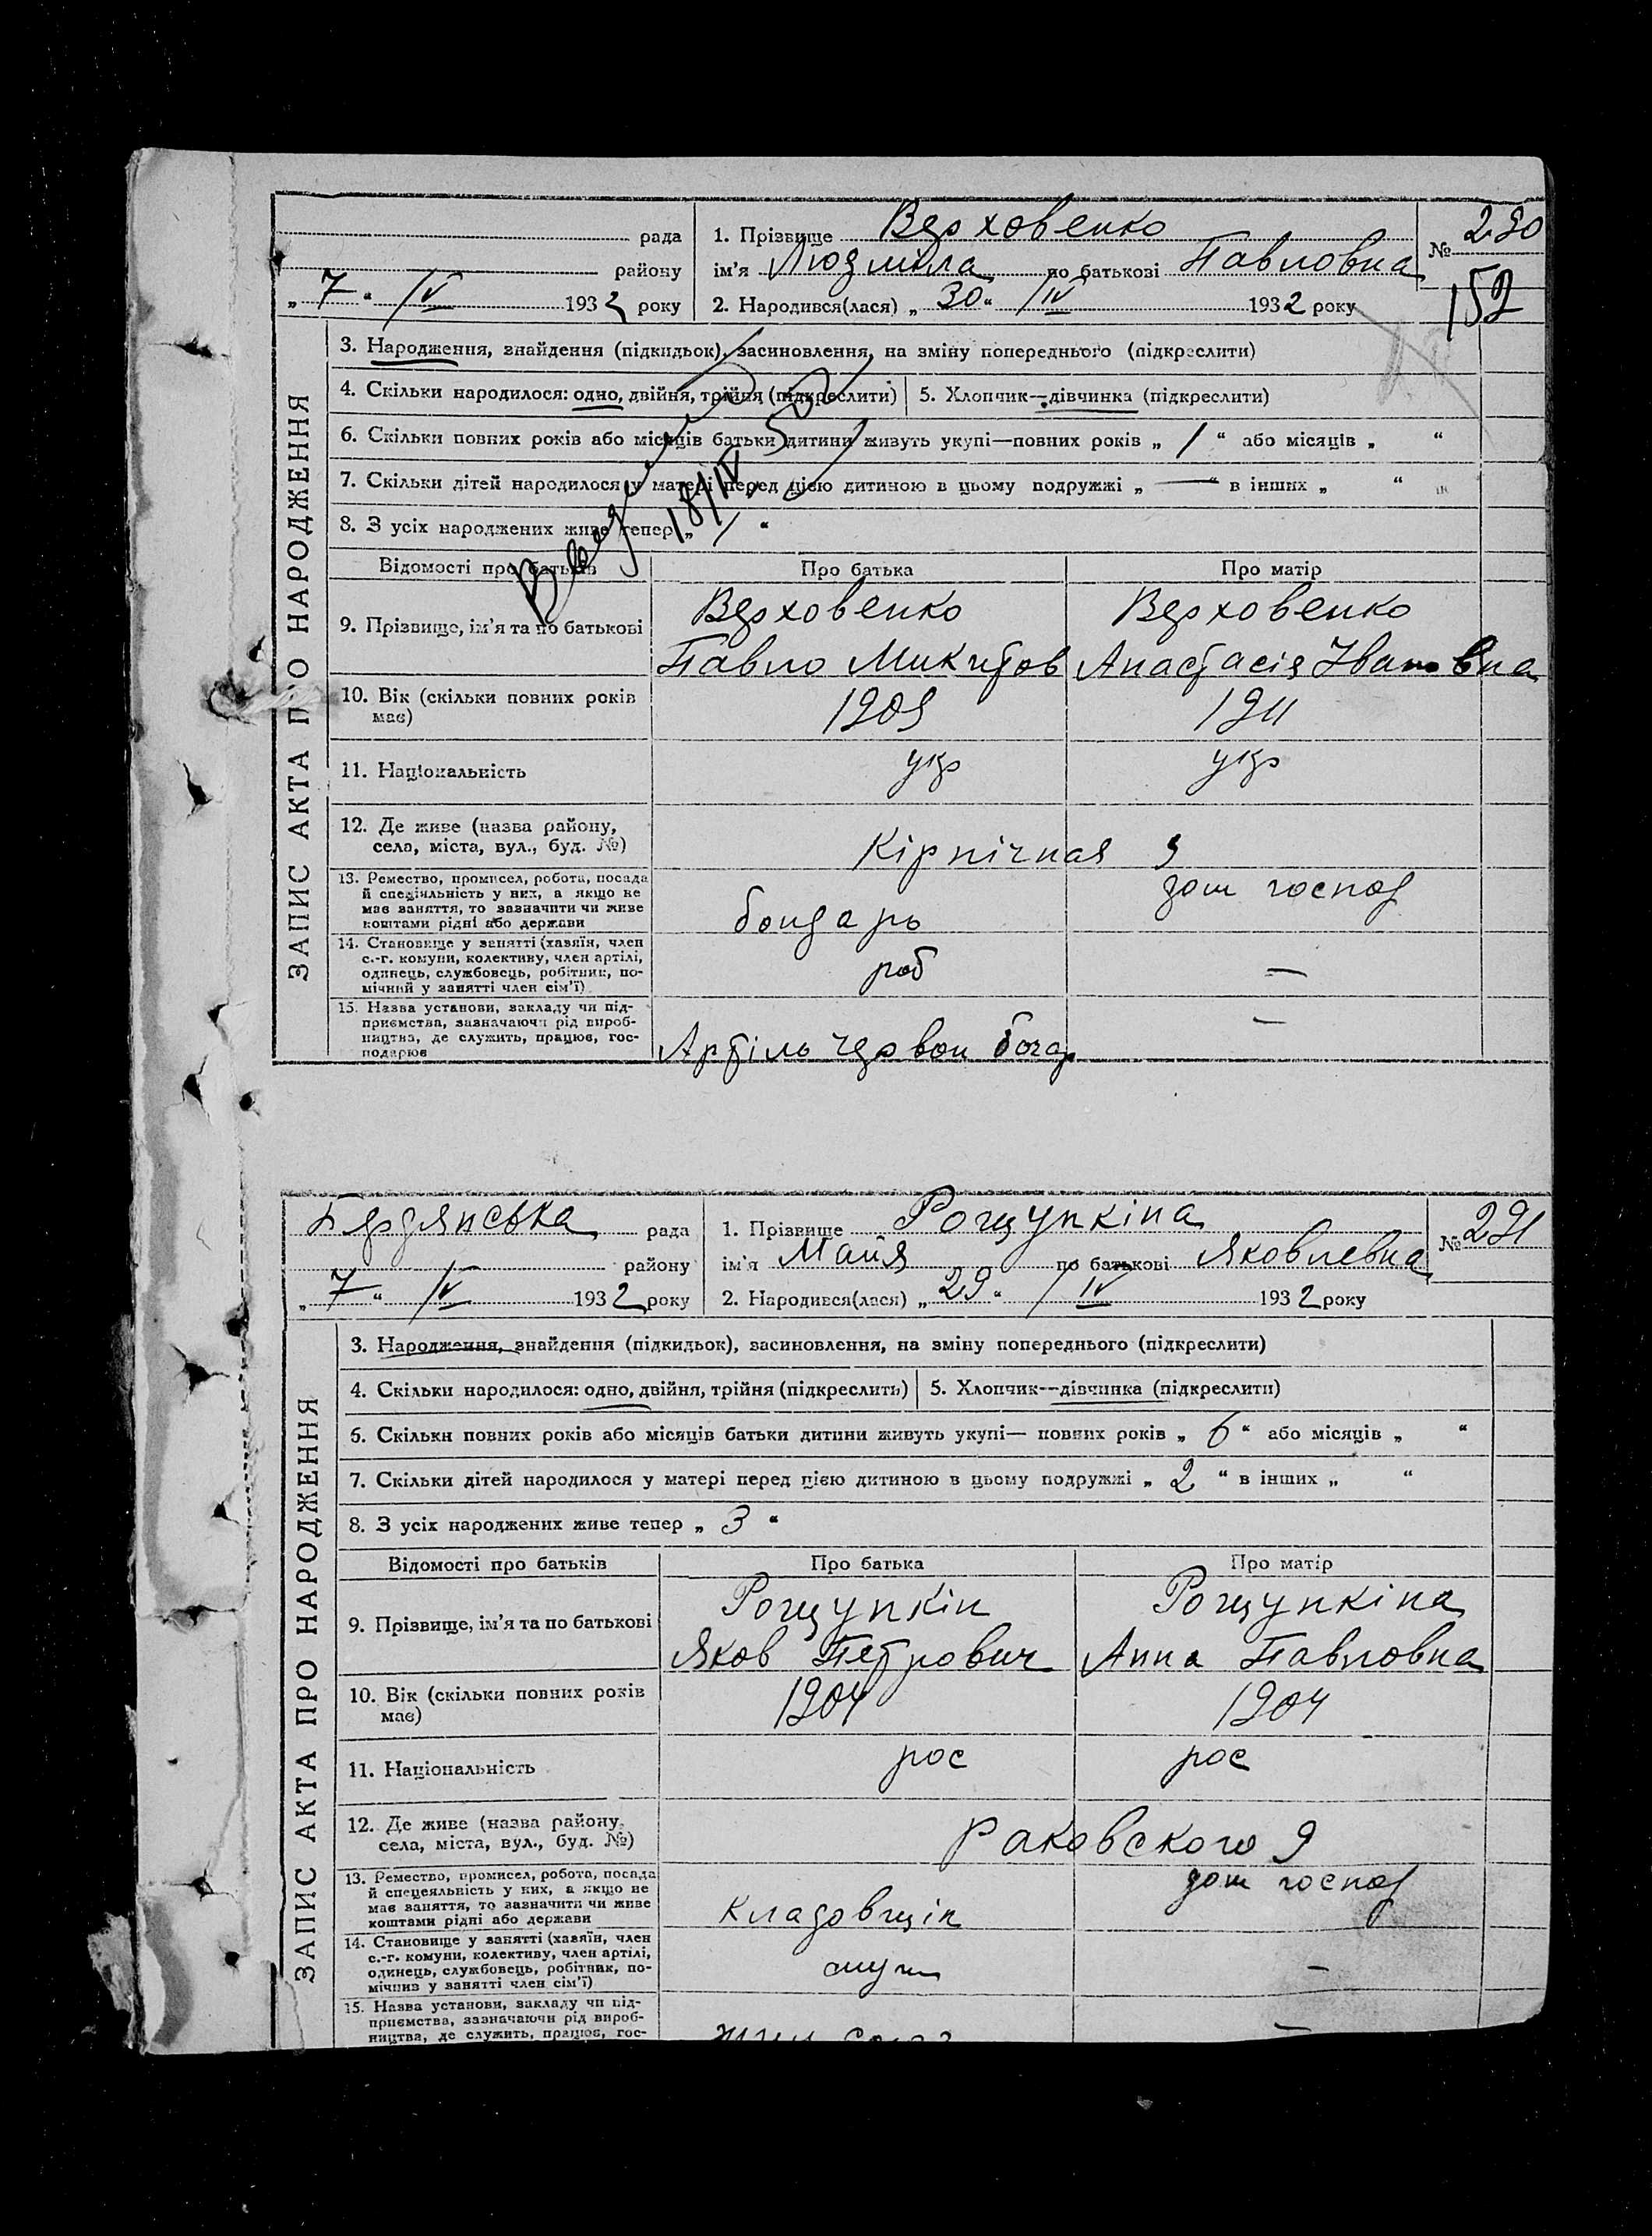 рада
району
„ 7 “ IV 1932 року
1. Прізвище Верховенко
ім'я Людміла по батькові Павловна
2. Народився(лася) „ 30 “ IV 1932 року
№ 290
152
ЗАПИС АКТА ПРО НАРОДЖЕННЯ
3. Народження, знайдення (підкидьок), засиновлення, на зміну попереднього (підкреслити)
4. Скільки народилося: одно, двійня, трійня (підкреслити)
5. Хлопчик—дівчинка (підкреслити)
6. Скільки повних років або місяців батьки дитини живуть укупі—повних років „ 1 “ або місяців „ “
7. Скільки дітей народилося у матері перед цією дитиною в цьому подружжі „ — “ в інших „ “
8. З усіх народжених живе тепер „ 1 “
18/IV
Відомості про батьків
Про батька
Про матір
9. Прізвище, ім'я та по батькові
Верховенко
Павло Микитов
Верховенко
Анастасія Івановна
10. Вік (скільки повних років
має)
1909
1911
11. Національність
укр
укр
12. Де живе (назва району,
села, міста, вул., буд. №)
Кірпічная 9
13. Ремество, промисел, робота, посада
й спеціяльність у них, а якщо не
має заняття, то зазначити чи живе
коштами рідні або держави
бондарь
дом господ
14. Становище у занятті (хазяїн, член
с.-г. комуни, колективу, член артілі,
одинець, службовець, робітник, по-
мічний у занятті член сім'ї)
роб
—
15. Назва установи, закладу чи під-
приємства, зазначаючи рід вироб-
ництва, де служить, працює, гос-
подарює
Артіль червон бочар
—
Бердянська рада
району
„ 7 “ IV 1932 року
1. Прізвище Рощупкіна
ім'я Майя по батькові Яковлевна
2. Народився(лася) „ 29 “ IV 1932 року
№ 291
ЗАПИС АКТА ПРО НАРОДЖЕННЯ
3. Народження, знайдення (підкидьок), засиновлення, на зміну попереднього (підкреслити)
4. Скільки народилося: одно, двійня, трійня (підкреслить)
5. Хлопчик—дівчинка (підкреслити)
6. Скільки повних років або місяців батьки дитини живуть укупі— повних років „ 6 “ або місяців „ “
7. Скільки дітей народилося у матері перед цією дитиною в цьому подружжі „ 2 “ в інших „ “
8. З усіх народжених живе тепер „ 3 “
Відомості про батьків
Про батька
Про матір
9. Прізвище, ім'я та по батькові
Рощупкін
Яков Петрович
Рощупкіна
Анна Павловна
10. Вік (скільки повних років
має)
1904
1904
11. Національність
рос
рос
12. Де живе (назва району,
села, міста, вул., буд. №)
Раковского 9
13. Ремество, промисел, робота, посада
й спецеяльність у них, а якщо не
має заняття, то зазначити чи живе
коштами рідні або держави
Кладовщік
дом господ
14. Становище у занятті (хазяїн, член
с.-г. комуни, колективу, член артілі,
одинець, службовець, робітник, по-
мічниз у занятті член сім'ї)
служ
—
15. Назва установи, закладу чи під-
приємства, зазначаючи рід вироб-
ництва, де служить, працює, гос-
—